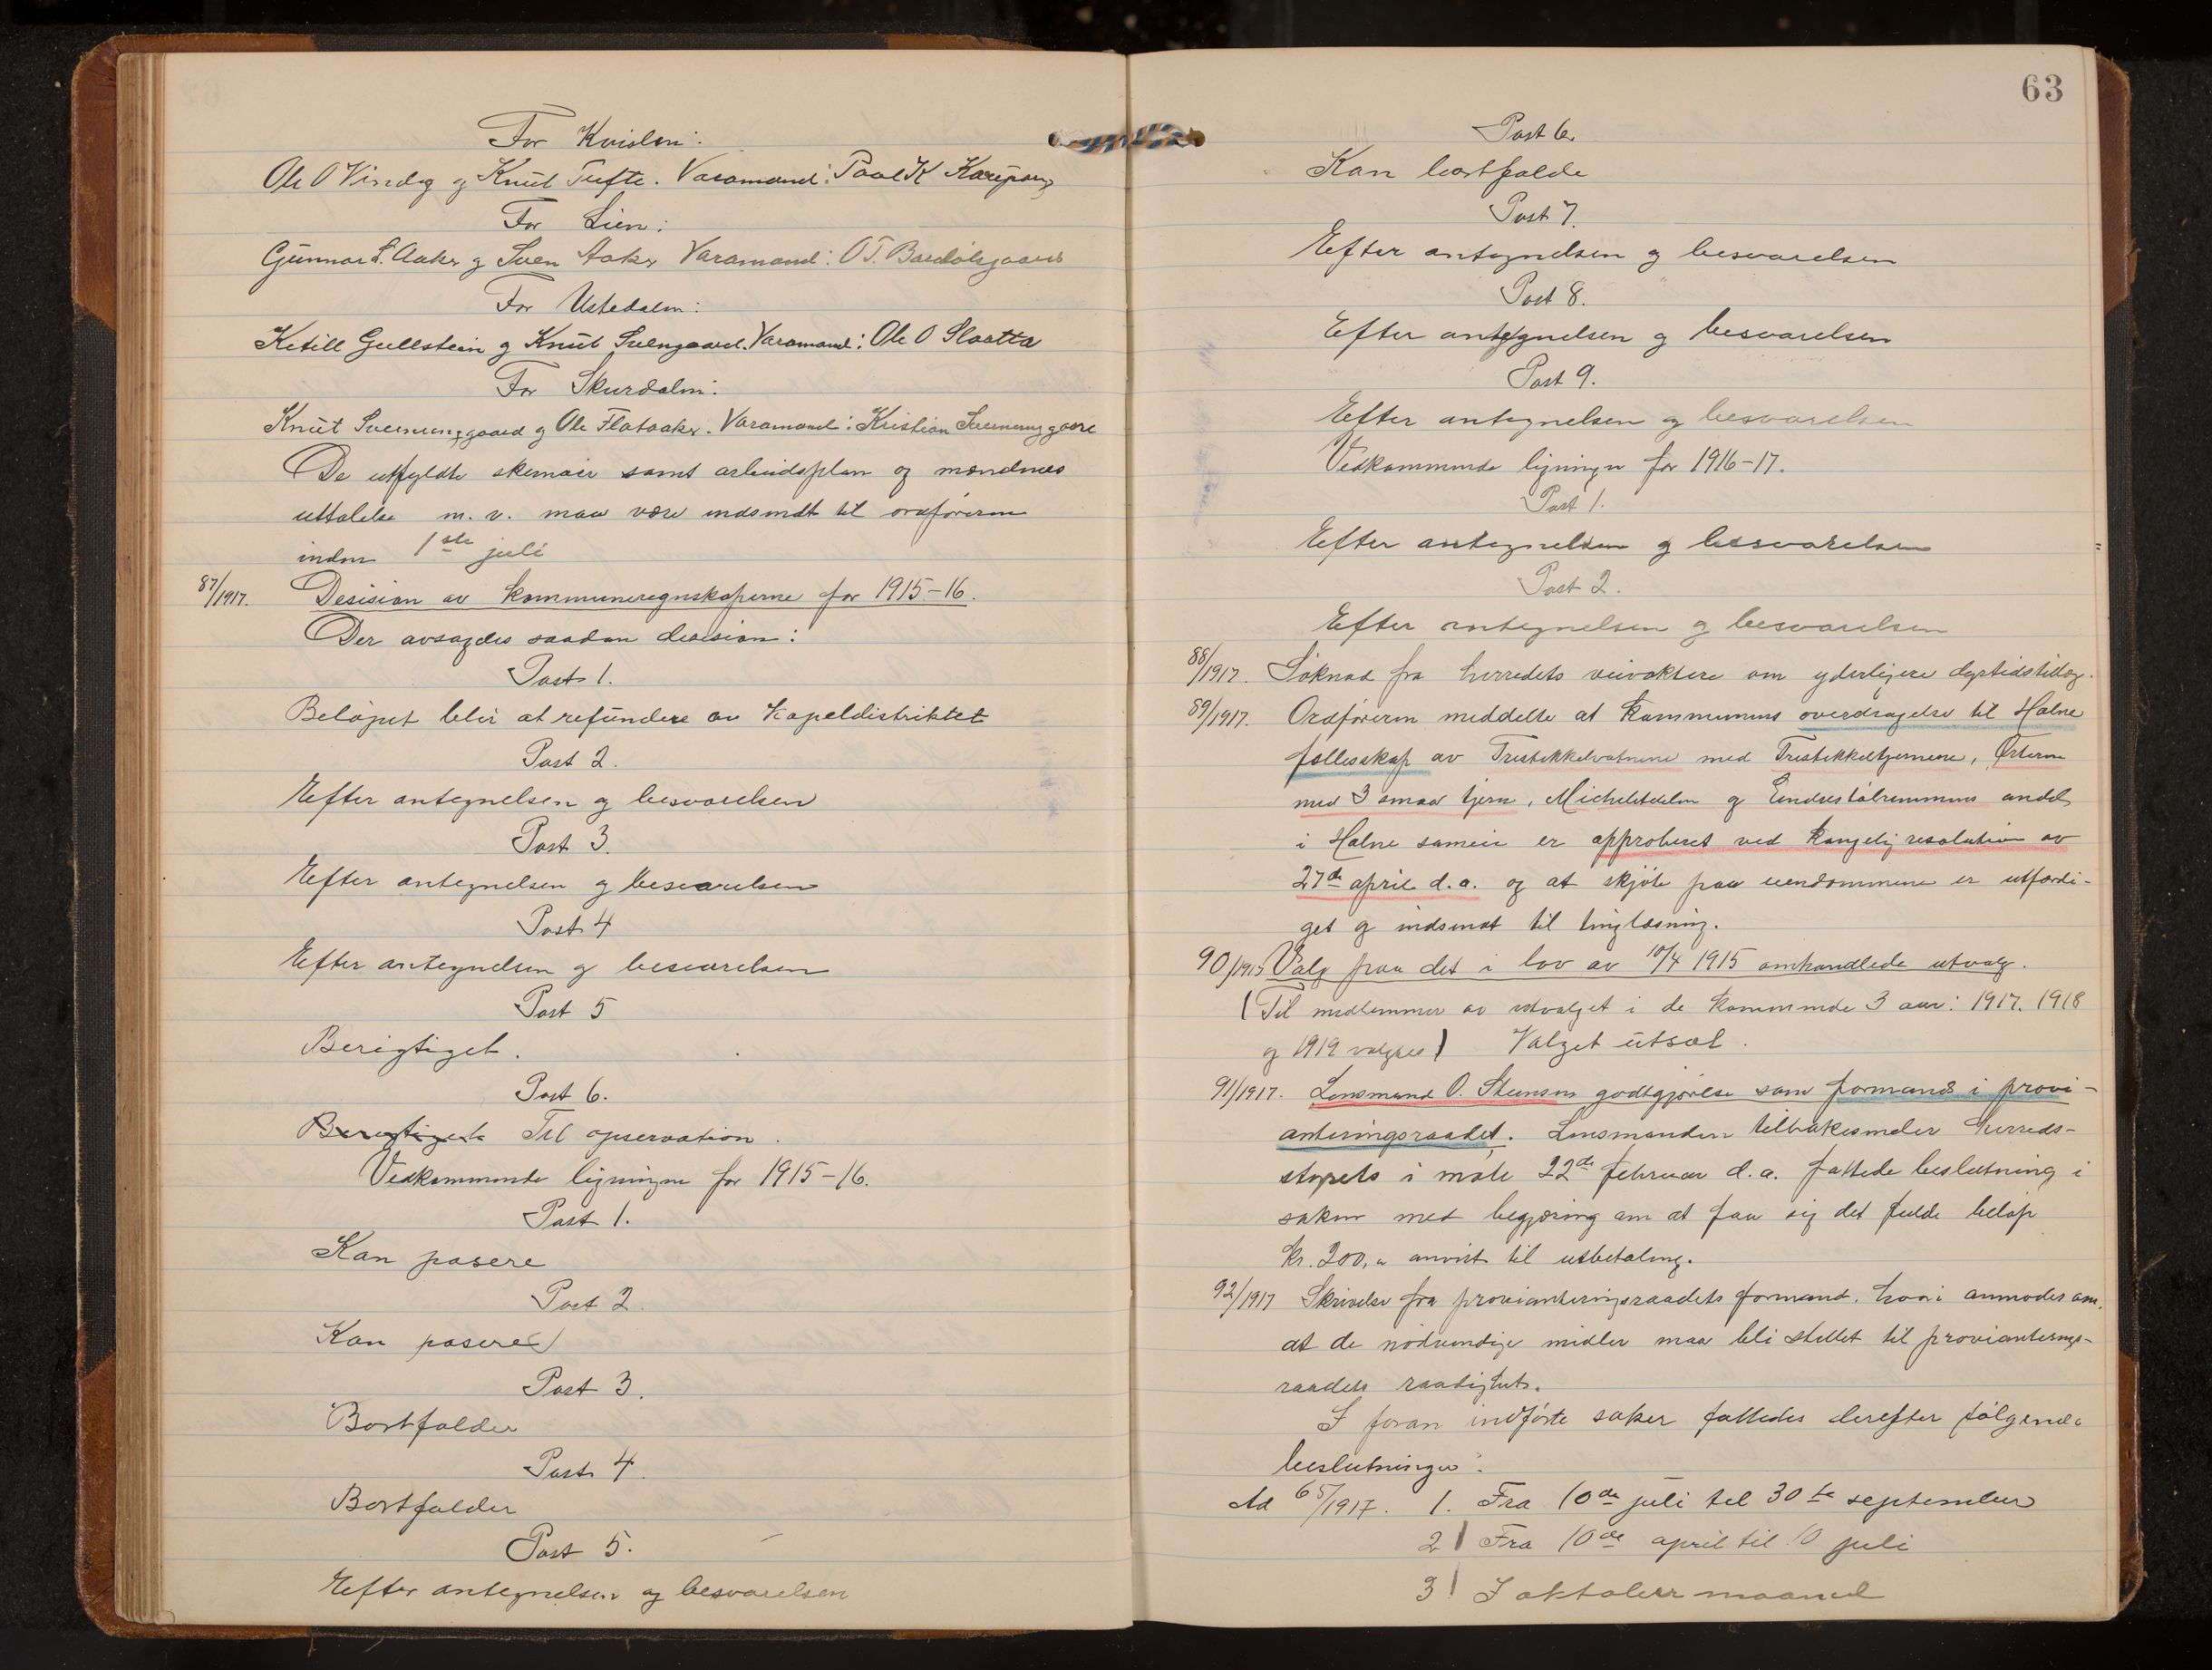 For Kvislen:
Ole O Vindeg og Knut Tufte. Varamand: Paal K
For Lien:
Gunnar S. Aaker og Sven Aaker Varamand: O T. Bardølsgaard
For Ustedalen:
Ketill Gullstein og Knut Svengaard. Varamand: Ole O Slaatta
For Skurdalen:
Knut Sveinungsgaard og Ole Flotaaker. Varamand: Kristian Sveinunggaard
De utfyldte skemaer samt arbeidsplan og mændnes
uttalelse m. v. maa være indsendt til ordføreren
inden 1ste juli
87/1917. Desision av kommuneregnskaperne for 1915-16.
Der avsagdes saadan desision:
Post 1.
Beløpet blir at refundere av Kapeldistriktet
Post 2.
Efter antegnelsen og besvarelsen
Post 3.
Efter antegnelsen og besvarelsen
Post 4
Efter antegnelsen og besvarelsen
Post 5
Berigtiget.
Post 6.
Berigtiget Til opservation.
Vedkommende ligningen for 1915-16.
Post 1.
Kan pasere
Post 2.
Kan pasere
Post 3.
Bortfalder
Post 4.
Bortfalder
Post 5.
Efter antegnelsen og besvarelsen
63
Post 6.
Kan bortfalde
Post 7.
Efter antegnelsen og besvarelsen
Post 8.
Efter antegnelsen og besvarelsen
Post 9.
Efter antegnelsen og besvarelsen
Vedkommende ligningen for 1916-17.
Post 1.
Efter antegnelsen og besvarelsen
Post 2.
Efter antegnelsen og besvarelsen
88/1917. Søknad fra herredets veivoktere om yderligere dyrtidstillæg.
89/1917. Ordføreren meddelte at kommunens overdragelse til Halne
fællesskap av Trestikkelvatnene med Trestikkeltjernene, Ørteren
med 3 smaa tjern, og andel
i Halne sameie er approberet ved kongelig resolution av
27de april d.a. og at skjøte paa eiendommene er utfærdi-
get og indsendt til tinglæsning.
90/1917 Valg paa det i lov av 10/4 1915 omhandlede utvalg.
(Til medlemmer av utvalget i de kommende 3 aar: 1917. 1918
og 1919 valgtes) Valget utsat.
91/1917. Lensmand O. Steensens godtgjørelse som formand i provi-
anteringsraadet. Lensmanden tilbakesender herreds-
styrets i møte 22de februar d.a. fattede beslutning i
saken med begjæring om at faa sig det fulde beløp
kr. 200,- anvist til utbetaling.
92/1917 Skrivelse fra provianteringsraadets formand, hvori anmodes om,
at de nødvendige midler maa bli stillet til provianterings-
raadets raadighet.
I foran indførte saker fattedes derefter følgende
beslutninger:
Ad 65/1917. 1. Fra 10de juli til 30te september
2) Fra 10de april til 10 juli
3) I oktober maaned